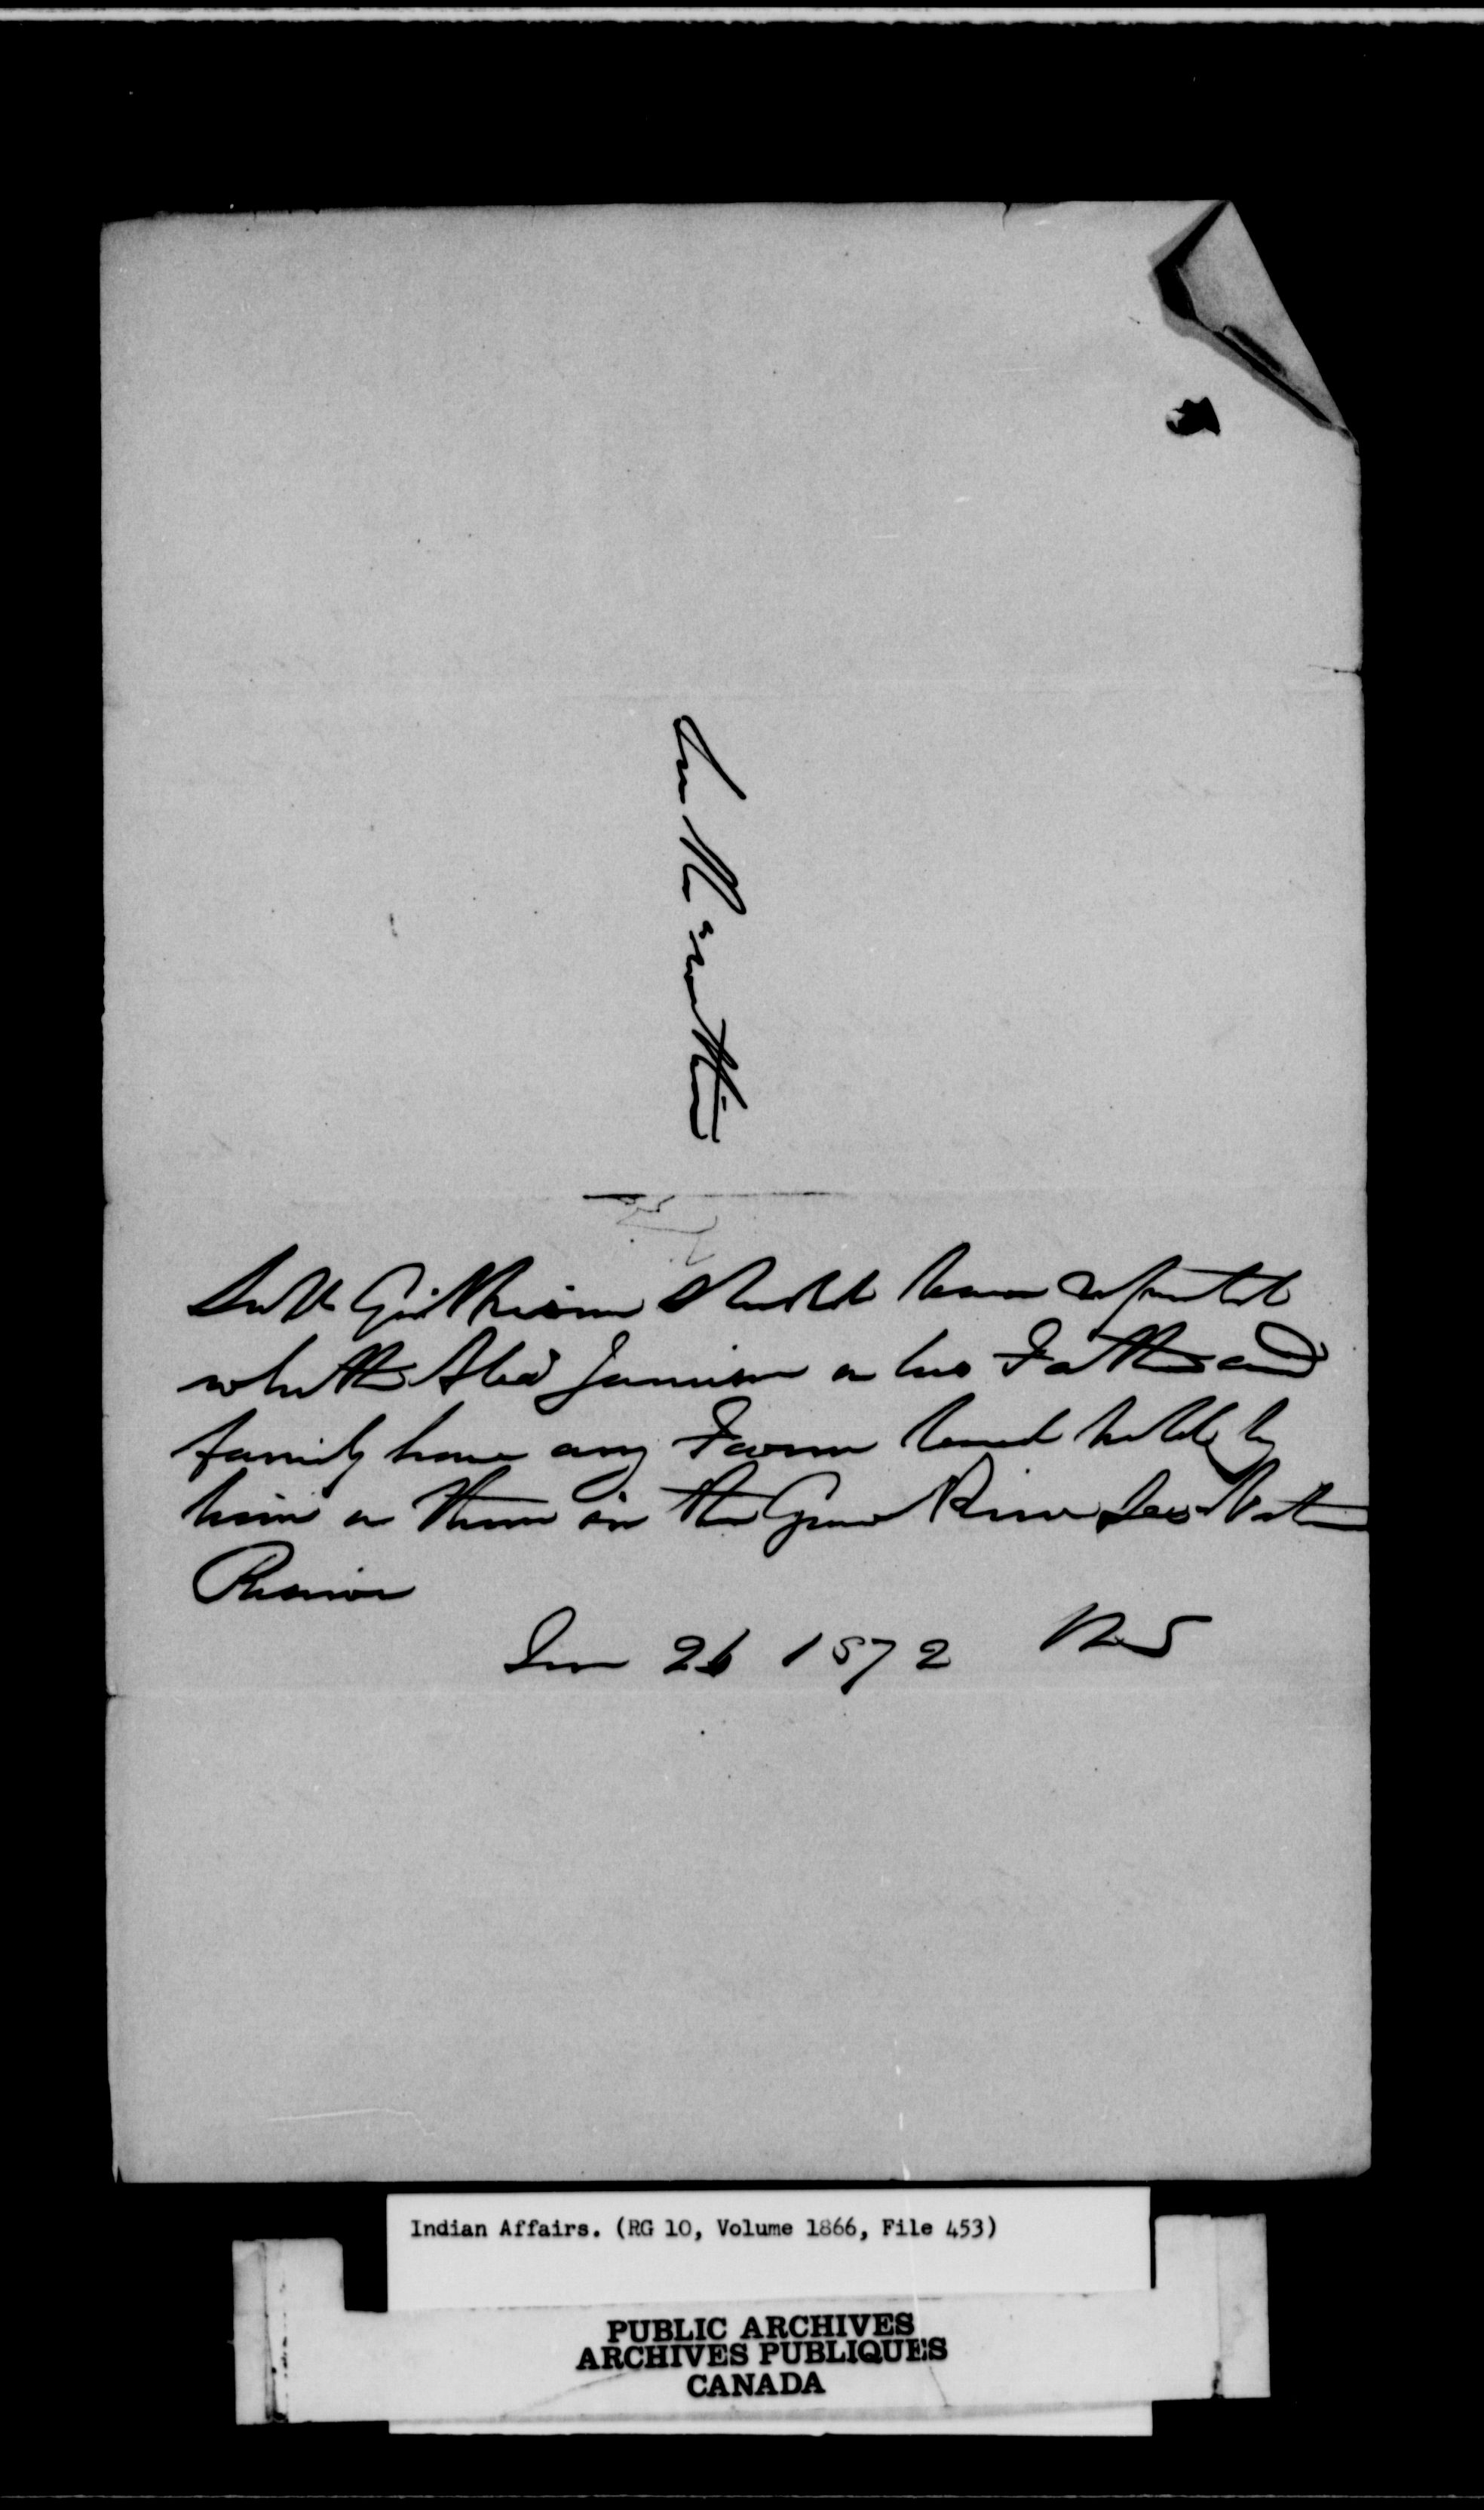 Supt Gilkison should have reported
whether Alex Jamison or his Father and
family have any Farm land held by
him or them in the Grand River Six Nation
Reserve
Jan 26 1872
Indian Affairs. (RG 10, Volume 1866, File 453)
PUBLIC ARCHIVES
ARCHIVES PUBLIQUES
CANADA